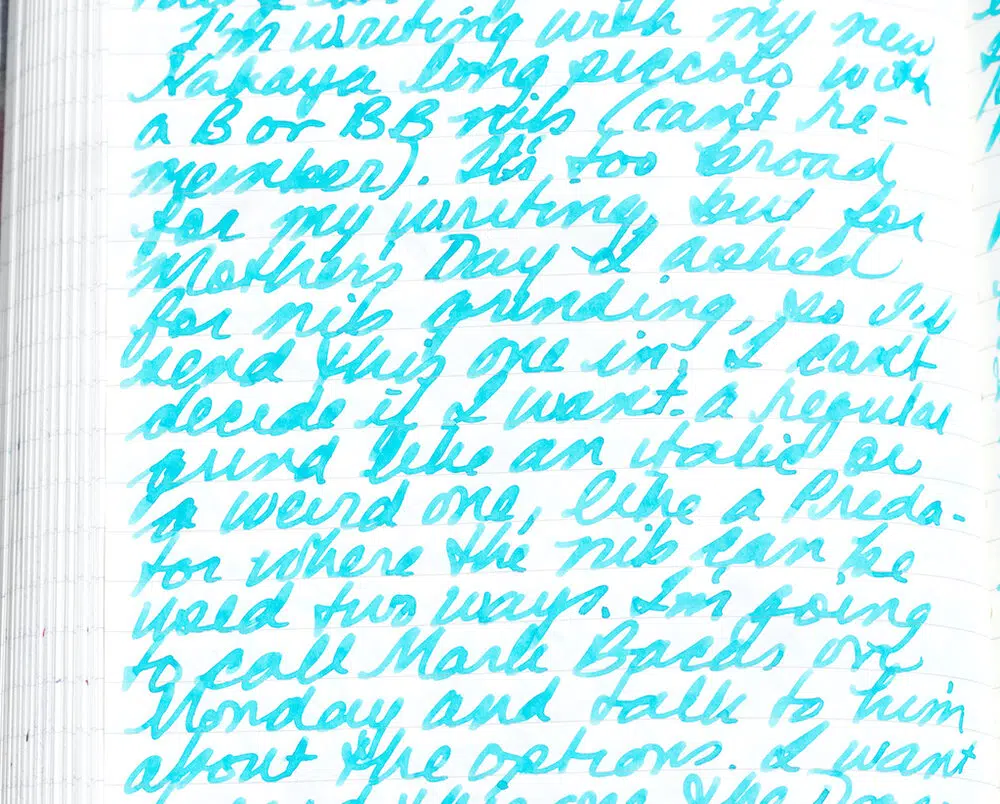 I'm writing with my new
Nakaya long piccolo with
a B or BB nib (can't re-
member). It's too broad
for my writing, but for
Mother's Day I asked
for nib grinding, so I'll
send this one in. I can't
decide if I want a regular
grind like an italic or
a weird one, like a Preda-
tor where the nib can be
used two ways. I'm going
to call Mark Bacas on
Monday and talk to him
about the options. I want